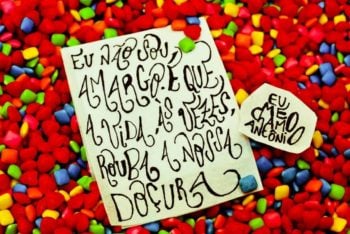 EU NÃO SOU
AMARGO. É QUE
A VIDA, ÀS VEZES,
ROUBA A NOSSA
DOÇURA
EU
ME
CHAMO
ANTÔNIO